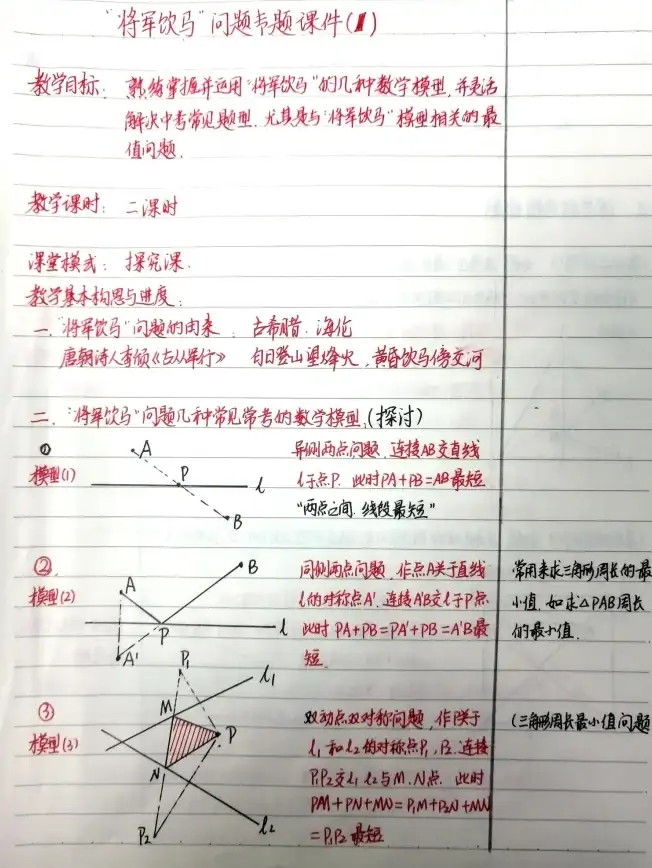 "将军饮马"问题专题课件(1)
教学目标: 熟练掌握并运用"将军饮马"的几种数学模型,并灵活
解决中考常见题型.尤其是与"将军饮马"模型相关的最
值问题.
教学课时: 二课时
课堂模式: 探究课.
教学基本构思与进度:
一."将军饮马"问题的由来: 古希腊.海伦
唐朝诗人李颀《古从军行》 白日登山望烽火,黄昏饮马傍交河
二."将军饮马"问题几种常见常考的数学模型.(探讨)
①
模型(1)
A
P
l
B
异侧两点问题.连接AB交直线
l于点P. 此时PA+PB=AB最短
"两点之间.线段最短"
②
模型(2)
A
B
P
l
A'
同侧两点问题.作点A关于直线
l的对称点A'.连接A'B交l于P点
此时 PA+PB=PA'+PB=A'B最
短.
常用来求三角形周长的最
小值.如求△PAB周长
的最小值.
③
模型(3)
P₁
l₁
M
P
N
P₂
l₂
双动点双对称问题,作P关于
l₁和l₂的对称点P₁,P₂.连接
P₁P₂交l₁ l₂与M.N点. 此时
PM+PN+MN=P₁M+P₂N+MN
=P₁P₂最短
(三角形周长最小值问题